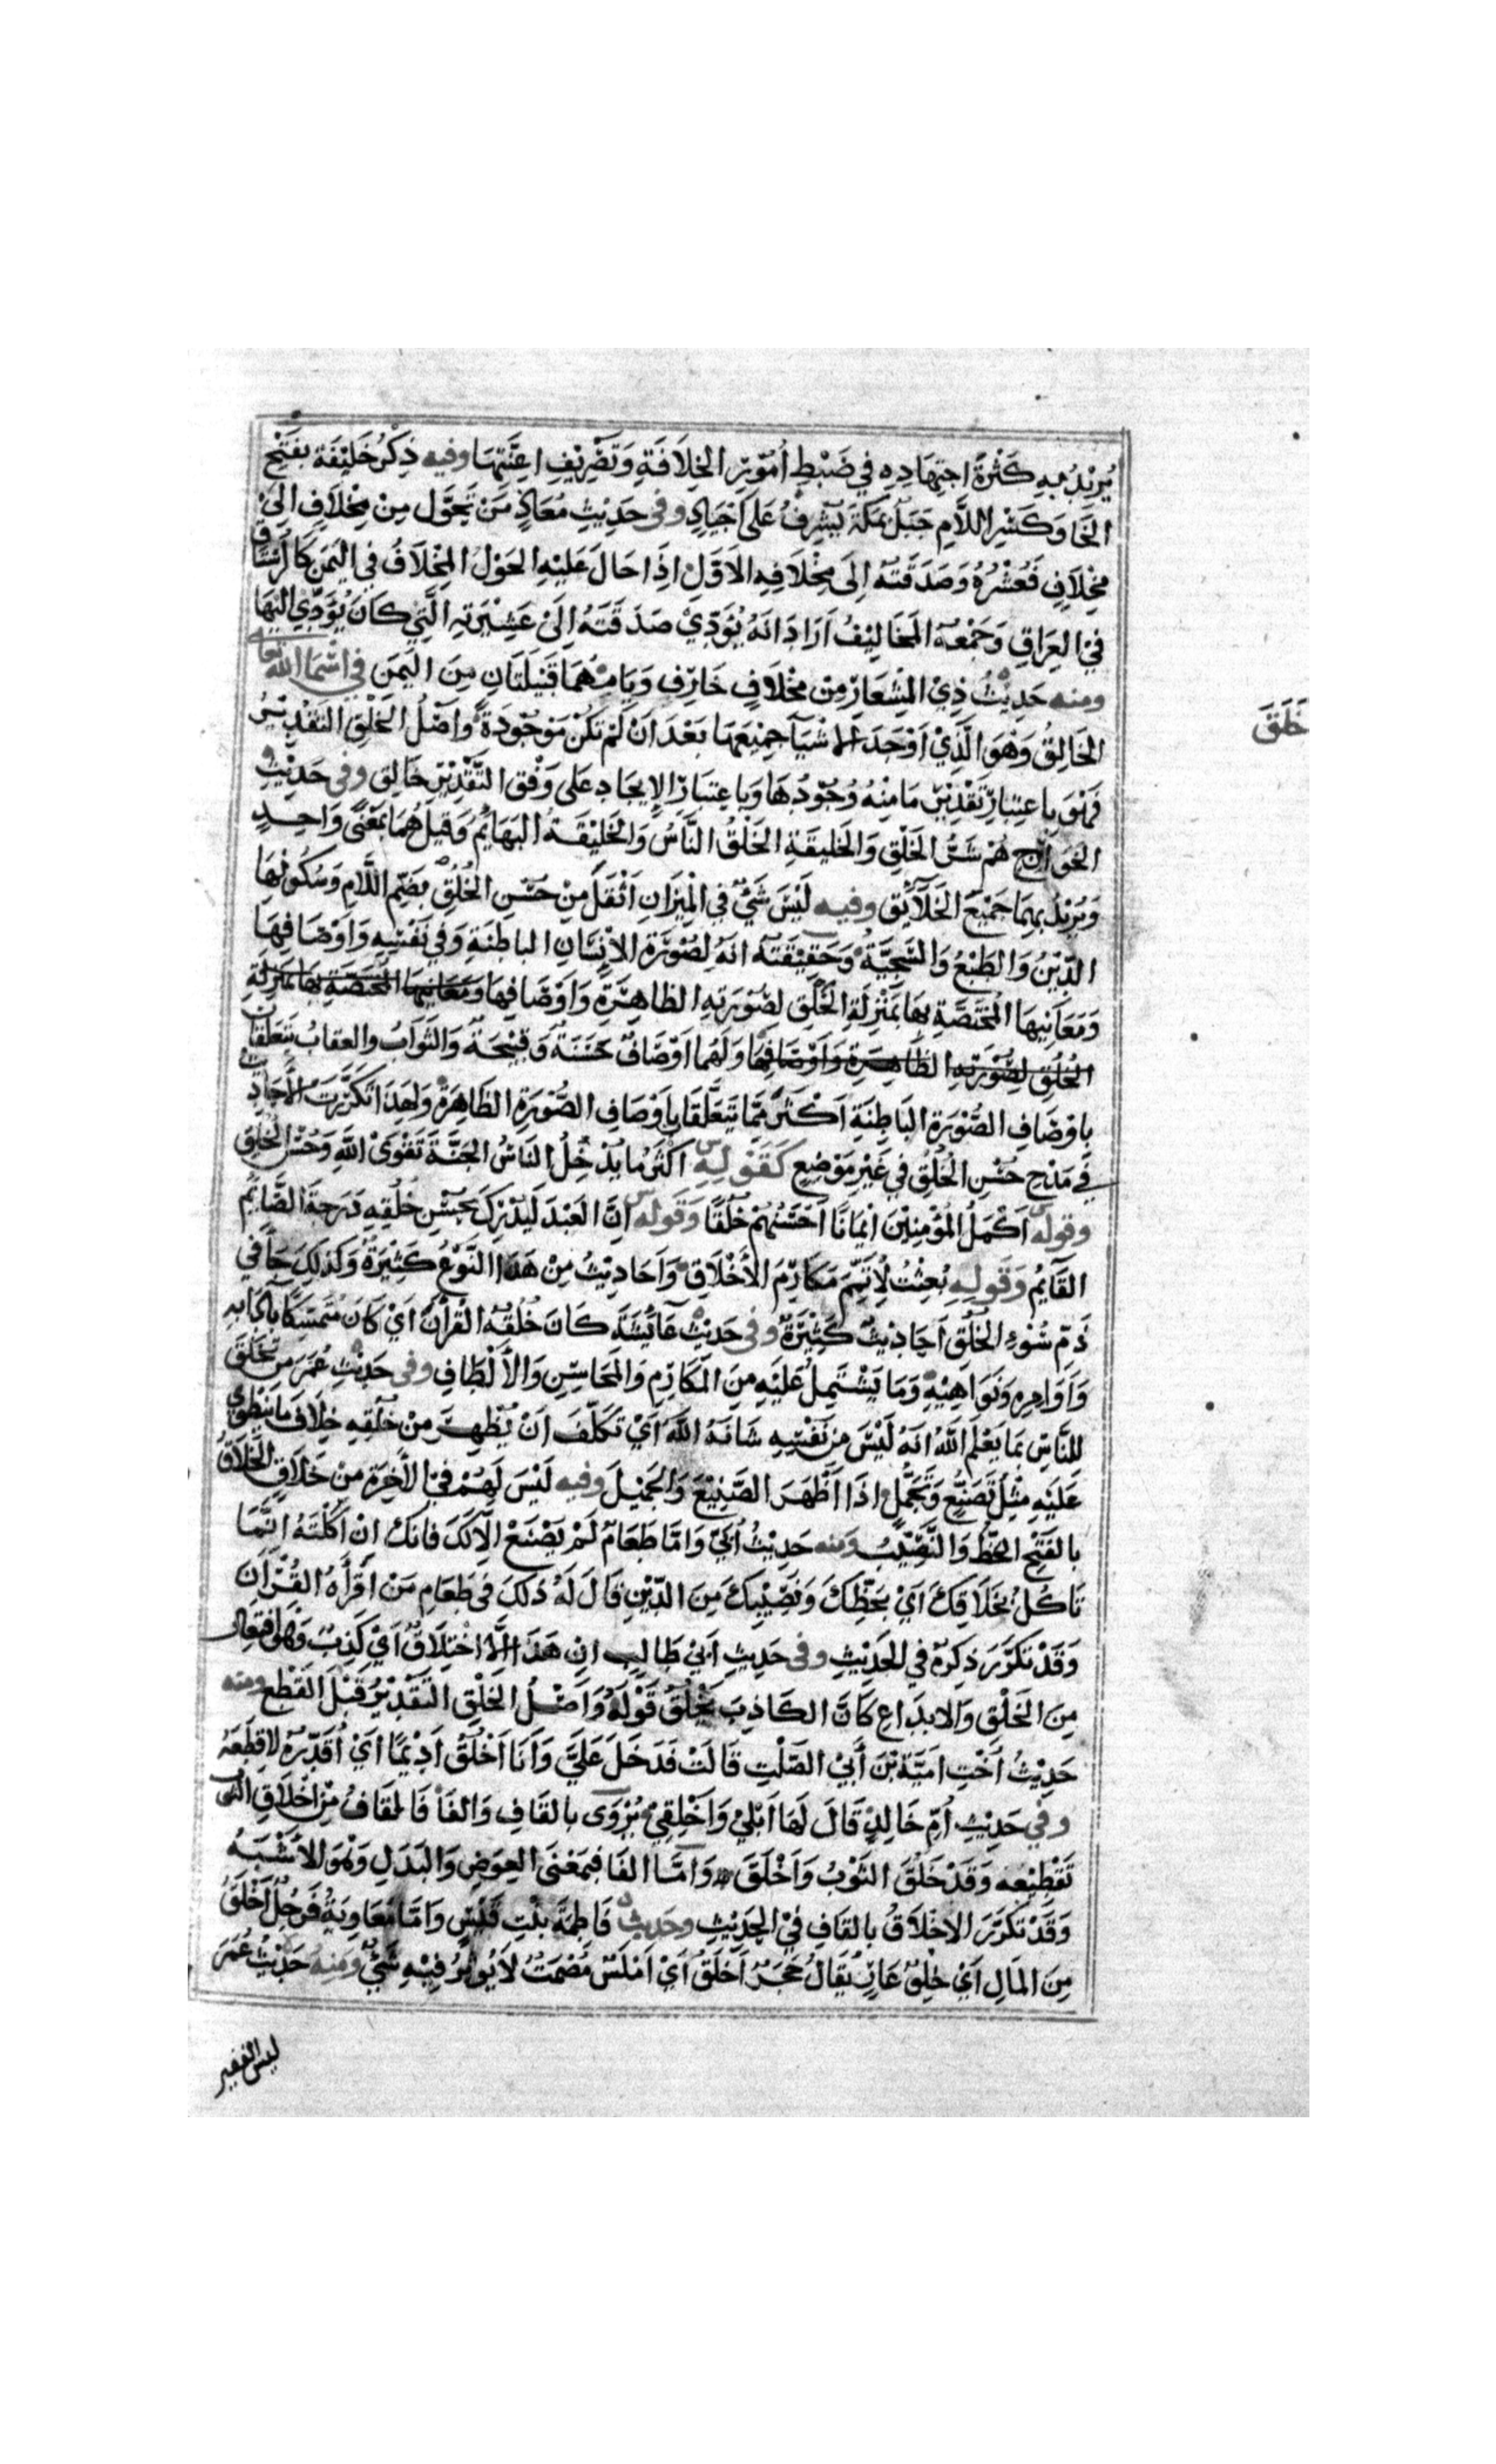 يُرِيْدُ بِهِ كَثْرَةَ اجتِهَادِهِ فِي ضَبْطِ أُمُوْرِ الخِلَافَةِ وَتَصْرِيْفِ اعِنَّتِهَا وفيه ذِكْرُ خَلِيْفَة بفَتْحِ
الخَا وَكَسْرِ اللَّامِ جَبَلٌ بمَكَّةَ يُشرِفُ عَلَى أجْيَادٍ وفى حَدِيْثِ مُعَاذٍ مَنْ تَحَوَّل مِنْ مِخْلَافٍ الىَ
مِخْلَافٍ فَعُشْرُهُ وَصَدَقَتُهُ إِلَى مِخْلَافِهِ الاَوَّلِ اِذَا حَالَ عَلَيْهِ الحَوْلُ المِخْلَافُ فِي اليَمَنِ كَالرُّسْتَاقِ
فِيْ العِرَاقِ وَجَمْعُهُ المَخَالِيْفُ اَرَادَ انَهُ يُؤَدِّيْ صَدَقَتَهُ اِلَىْ عَشِيْرَتِهِ الَّتِيْ كَانَ يُؤَدِّيْ اليْهَا
ومنه حَدِيْثُ ذِيْ المِشْعَارِ مِنْ مِخْلَافِ خَارِفٍ وَيَامٍ هُمَا قَبِيْلَتَانِ مِنَ اليَمَنِ فِي اسْمَا اللّٰهِ تَعَا
خَلَقَ
الخَالِقُ وَهُوَ الَّذِيْ اَوْجَدَ الاشْيَآ جَمِيْعَهَا بَعْدَ اَنْ لَمْ تَكُنْ مَوْجُوْدَةً وَاصْلُ الخَلْقِ التَّقْدِيْرُ
فَهُوَ بِاعتِبَارِ تَقْدِيْرِ مَا مِنْهُ وُجُوْدُهَا وَبِاعتِبَارِ الإِيجَادِ عَلَى وَفْقِ التَّقْدِيْرِ خَالِق وفى حَدِيْثِ
الخَوَارِج هُمْ شَرُّ الخَلْقِ وَالخَلِيقَةِ الخَلْقُ النَّاسُ وَالخَلِيْقَةُ البَهَايمُ وَقيلَ هُمَا بمَعْنًى وَاحِدٍ
وَيُرِيْدُ بهِمَا جَمِيْعَ الخَلَآئِق وفيه لَيْسَ شَيْءٌ في الْمِيْزَانِ اَثْقَلَ مِنْ حُسْنِ الخُلُقِ بضَمِّ اللَّامِ وَسُكُونِهَا
الدِّيْنُ وَالطَبْعُ وَالسَّجِيَّةُ وَحَقِيْقَتُهُ انَهُ لِصُوْرَةِ الاِنْسَانِ الباطِنَةِ وَهِيَ نَفْسُهُ وَاَوْصَافِهَا
وَمَعَانِيْهَا المُخْتَصَّةِ بهَا بمَنْزِلَةِ الخَلْقِ لصُوْرَتِهِ الظاهِرَةِ وَاَوْصَافِهَا وَمَعَانِيهَا المُخْتَصَّةِ بهَا بمَنزلَةِ
الخُلُقِ لِصُوْرَتِهِ الظَّاهِرَةِ وَاَوْصَافِهَا وَلَهُمَا اَوْصَافٌ حَسَنَةٌ وَقَبِيْحَةٌ وَالثَّوَابُ والعقابُ يَتَعَلَّقَانِ
بِاوْصَافِ الصُّوْرَةِ البَاطِنَةِ اَكْثَرَ مِمَّا يَتَعَلَّقَا بِاَوْصَافِ الصُّوْرَةِ الظَاهِرَة وَلِهَذَا تَكَرَّرَتْ الأحَادِيثُ
فِي مَدْحِ حُسْنِ الخُلُقِ فِي غَيْرِ مَوْضِعٍ كَقَوْلِهِ اكْثَرُ مَا يُدْخِلُ النَاسَ الجَنَّةَ تَقْوَىْ اللّٰهِ وَحُسْنُ الخُلُقِ
وقوله اَكْمَلُ المُؤْمِنِيْنَ ايْمَانًا اَحْسَنُهُمْ خُلُقًا وَقَوله اِنَّ العَبْدَ لَيُدْرِكُ بحُسْنِ خُلُقِهِ دَرَجَةَ الصَّايْمِ
القَآيِمُ وَقَولِهِ بُعِثْتُ لِاُتَمِّمَ مَكَارِمَ الأَخْلَاقِ وَاَحَادِيْثُ مِنْ هَذَا النَّوْعِ كَثِيْرَةٌ وَكَذلِكَ جَآ فِي
ذَمِّ سُوْءِ الخُلُقِ اَحَادِيْثٌ كَثِيْرَةٌ وفى حَدِيْثِ عَآئِشَةَ كَانَ خُلُقُهُ القُرْآنُ اَيْ كَانَ مُتَمَسِّكًا بآدَابِهِ
وَاَوَامِرِهِ وَنَوَاهِيْهِ وَمَا يَشْتَمِلُ عَلَيْهِ مِنَ الْمَكَارِمِ وَالمَحَاسِنِ وَالأَلْطَافِ وفى حَدِيْثِ عُمَرَ مَنْ تَخَلَّقَ
للنَّاسِ بمَا يَعْلَم اللّٰهُ انَهُ لَيْسَ مِن نَفْسِهِ شَانَهُ اللّٰهُ اَيْ تَكَلَّفَ اَنْ يُظْهِرَ مِنْ خُلُقِهِ خِلَافَ مَا يَنْطَوِي
عَلَيْهِ مِثْل تَصَنَّعَ وَتَجَمَّلَ اذَا اَظْهَرَ الصَّنِيْعَ وَالجَمِيْلَ وفيه لَيْسَ لَهُمْ فِيْ الأَخِرَةِ مِنْ خَلَاقٍ الخَلَاقُ
بالفَتْحِ الحَظُّ وَالنَّصِيْبُ وَمنه حَدِيْثُ اُبَيّ وَامَّا طَعَامٌ لَمْ يُصْنَعْ الاَّ لَكَ فَانكَ انْ اَكَلْتَهُ انَّمَا
تَاكُلُ بخَلَاقِكَ اَيْ بحَظِّكَ وَنَصِيْبِكَ مِنَ الدِّيْنِ قَالَ لَهُ ذَلكَ في طَعَامِ مَنْ اَقْرَأَهُ القُرْآنَ
وَقَدْ تَكَرَّرَ ذِكرُهُ فِي الحَدِيْثِ وفى حَدِيثِ اَبيْ طَالِبٍ انْ هَذَا الاَّ اخْتِلَاقٌ اَيْ كَذِبٌ وَهُوَ افتِعال
مِنَ الخَلْقِ وَالابدَاعِ كَانَّ الكَاذِبَ يَخْلُقُ قَوْلَهُ وَاَصْلُ الخَلْقِ التَّقْدِيْرُ قَبْلَ القَطْعِ ومنه
حَدِيْثُ اُخْتِ امَيَّةَ بْنَ أَبِيْ الصَّلْتِ قَالَتْ فَدَخَلَ عَلَيَّ وَاَنَا اَخْلُقُ اَدِيْمًا اَيْ اُقَدِّرُهُ لاقطَعَهُ
وفي حَدِيْثِ اُمِّ خَالِدٍ قَالَ لَهَا اَبْلِيْ وَاَخْلِقِيْ يُرْوَى بالقَافِ وَالفَا فَالقَافُ مِنْ اخْلَاقِ الثوب
تَقْطِيْعه وَقَدْ خَلُقَ الثَوْبُ وَاَخْلَقَ وَامَّا الفَا فبمَعْنَى العِوَضِ وَالبَدَلِ وَهُوَ الاَشْبَهُ
وَقَدْ تَكَرَّرَ الاخْلَاقُ بالقَافِ فِيْ الحَدِيْثِ وحَدِيث فَاطِمَةَ بنْتِ قَيْسٍ وَامَّا مُعَاوِيَةُ فَرَجُلٌ اَخْلَقُ
مِنَ المَالِ اَيْ خِلْقٌ عَارٍ يُقَالُ حَجَرٌ اَخْلَقُ اَيْ اَمْلَسُ مُصْمَتٌ لاَ يُؤَثِّرُ فِيْهِ شَيْءٌ وَمِنهُ حَدِيْثُ عُمَرَ
ليس الفقير